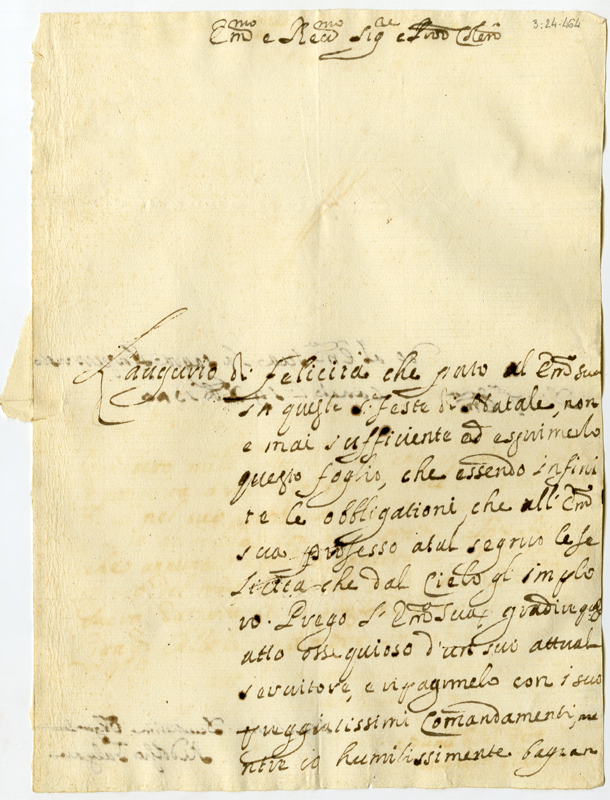 3-24-464
Em̃mo e Reũmo Sig.re e Pro͠n Col͠mo
L'auguvio di felicità che pato al Em̃o sua
in queste s.te feste di Natale, non
e mai sufficiente ad esprimerlo
questo foglio, che essendo infini
te le obbligationi, che all'Em̃o
sua professo a tal segno le fe
licità che dal Cielo gl' implo
ro. Prego S. Em̃a sua, gradire q.
atto ossequioso d'un suo attual
servitore, e ripagirmelo con i suoi
preggiatissimi Com̃andamenti, me
ntre io humilissimente